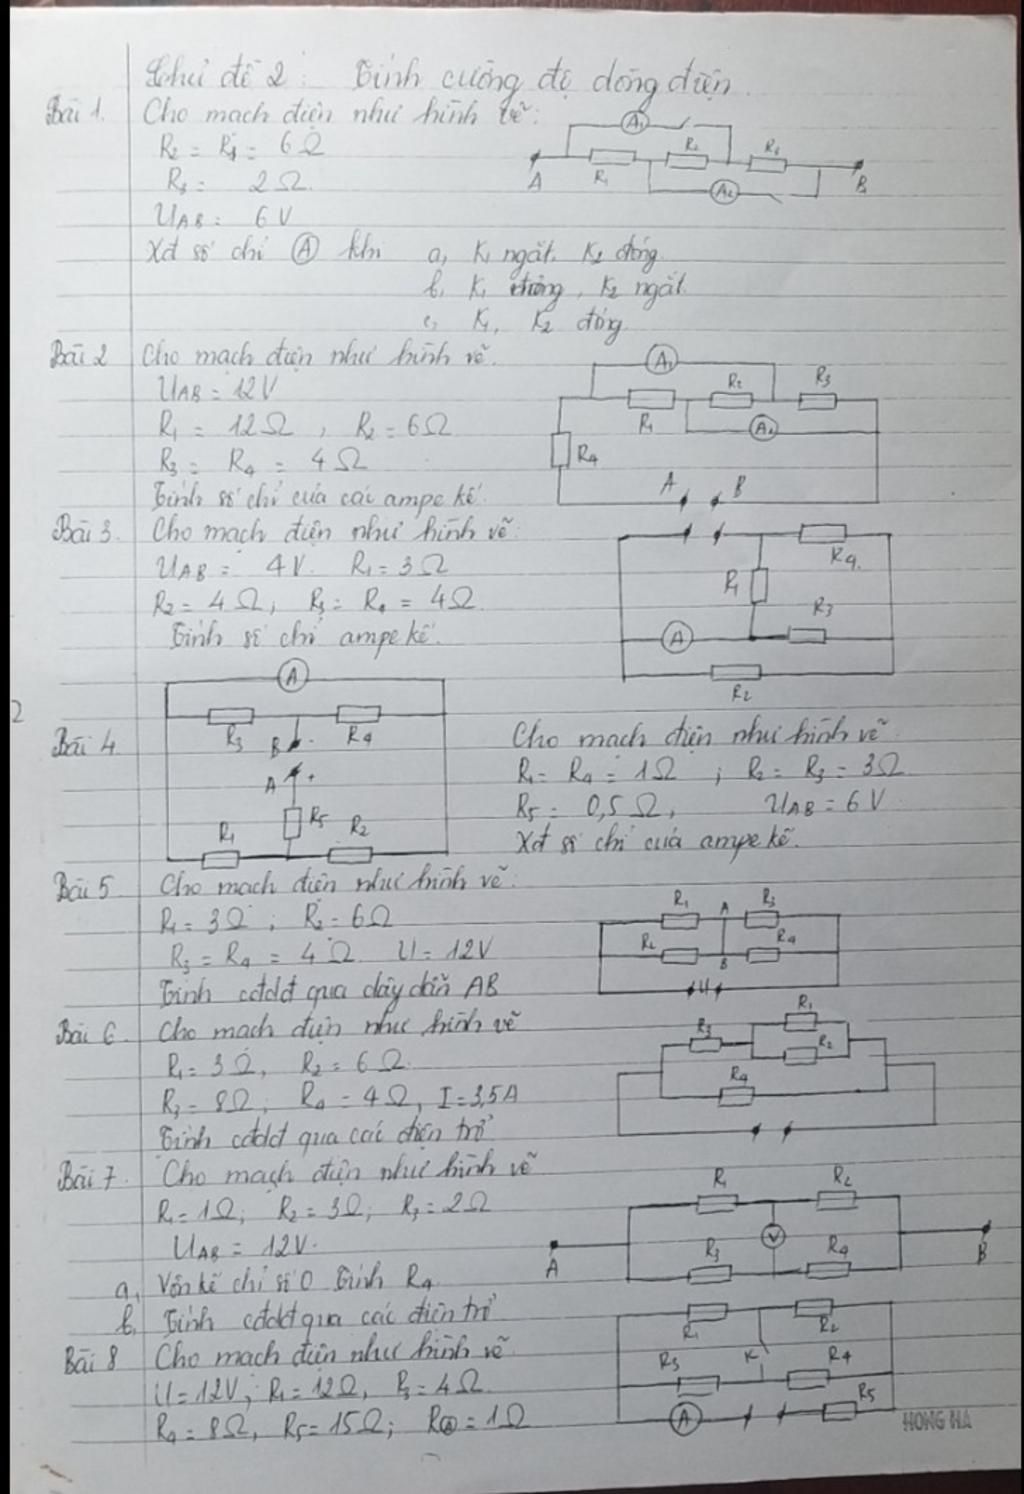 Chủ đề 2: Tính cường độ dòng điện.
Bài 1. Cho mạch điện như hình vẽ:
R₂ = R₃ = 6Ω
R₃ = 2Ω.
U_AB = 6V
Xđ số chỉ Ⓐ khi a, K₁ ngắt. K₂ đóng
b, K₁ đóng, K₂ ngắt
c, K₁, K₂ đóng
A₁
R₂
R₁
A
A₂
B
Bài 2 Cho mạch điện như hình vẽ.
U_AB = 12V
R₁ = 12Ω, R₂ = 6Ω
R₃ = R₄ = 4Ω
Tính số chỉ của các ampe kế.
A₁
R₂ R₃
R₁
A₂
R₄
A B
Bài 3. Cho mạch điện như hình vẽ:
U_AB = 4V. R₁ = 3Ω
R₂ = 4Ω; R₃ = R₄ = 4Ω.
Tính số chỉ ampe kế.
R₄
R₁
R₃
A
R₂
2
Bài 4 Cho mạch điện như hình vẽ
R₁ = R₄ = 1Ω; R₂ = R₃ = 3Ω
R₅ = 0,5Ω, U_AB = 6V
Xđ số chỉ của ampe kế.
A
R₃ B - R₄
A +
R₅
R₁ R₂
Bài 5 Cho mạch điện như hình vẽ:
R₁ = 3Ω; R₂ = 6Ω
R₃ = R₄ = 4Ω. U = 12V
Tính cđdđ qua dây dẫn AB
R₁ A R₃
R₂ B R₄
U
Bài 6. Cho mạch điện như hình vẽ
R₁ = 3Ω, R₂ = 6Ω.
R₃ = 8Ω; R₄ = 4Ω, I = 3,5A
Tính cđdđ qua các điện trở
R₁
R₃
R₂
R₄
Bài 7. Cho mạch điện như hình vẽ
R₁ = 1Ω; R₂ = 3Ω; R₃ = 2Ω
U_AB = 12V.
a, Vôn kế chỉ số 0 Tính R₄.
b, Tính cđdđ qua các điện trở
R₁ R₂
V
A B
R₃ R₄
Bài 8 Cho mạch điện như hình vẽ.
U = 12V; R₁ = 12Ω, R₃ = 4Ω.
R₄ = 8Ω, R₅ = 15Ω; RⒶ = 1Ω
R₁ R₂
R₃ K R₄
A R₅
HONG HA